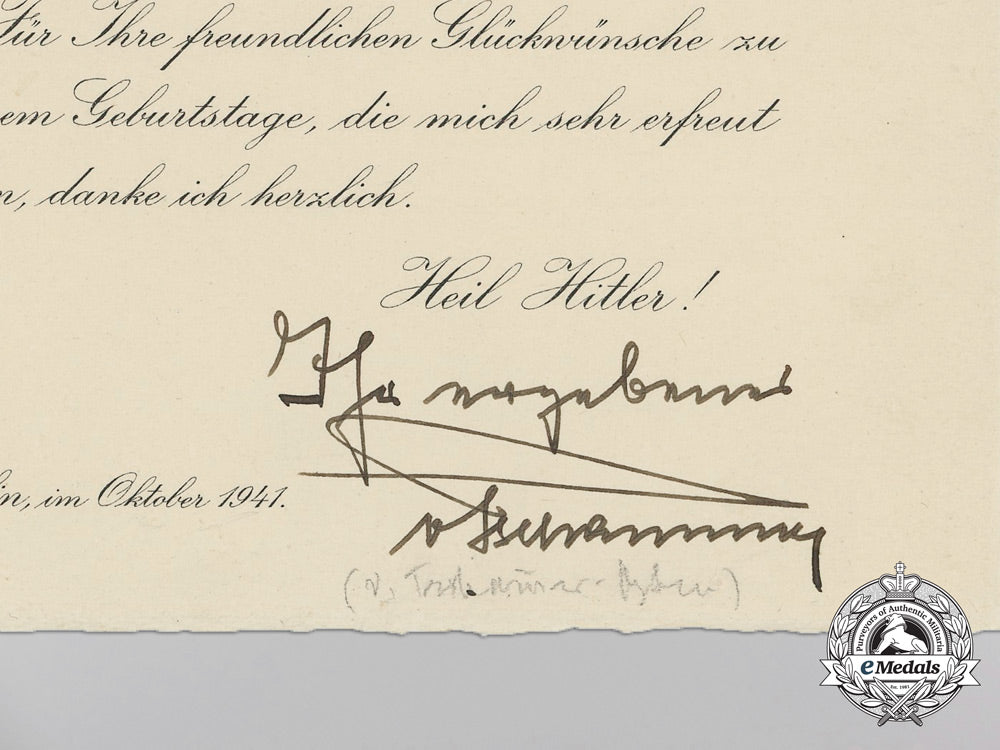 Für Ihre freundlichen Glückwünsche zu
em Geburtstage, die mich sehr erfreut
n, danke ich herzlich.
Heil Hitler!
Ihr ergebener
in, im Oktober 1941.
v Tschammer
(v. Tschammer-Osten)
Purveyors of Authentic Militaria
eMedals
Est. 1983